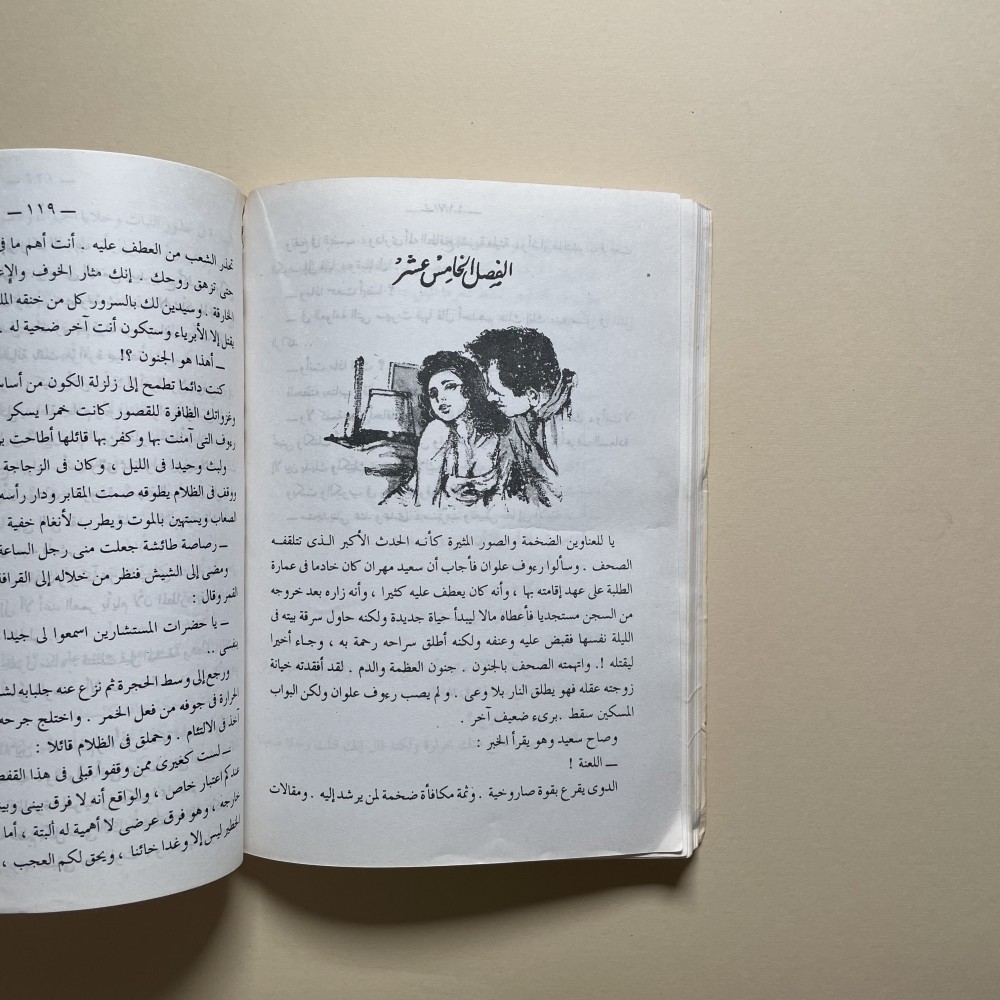 الفصل الخامس عشر
يا للعناوين الضخمة والصور المثيرة كأنه الحدث الأكبر الذى تتلقفه
الصحف . وسألوا رءوف علوان فأجاب أن سعيد مهران كان خادما فى عمارة
الطلبة على عهد إقامته بها ، وأنه كان يعطف عليه كثيرا ، وأنه زاره بعد خروجه
من السجن مستجديا فأعطاه مالا ليبدأ حياة جديدة ولكنه حاول سرقة بيته فى
الليلة نفسها فقبض عليه وعنفه ولكنه أطلق سراحه رحمة به ، وجاء أخيرا
ليقتله !. واتهمته الصحف بالجنون . جنون العظمة والدم . لقد أفقدته خيانة
زوجته عقله فهو يطلق النار بلا وعى . ولم يصب رءوف علوان ولكن البواب
المسكين سقط .برىء ضعيف آخر .
وصاح سعيد وهو يقرأ الخبر :
ــ اللعنة !
الدوى يقرع بقوة صاروخية . وثمة مكافأة ضخمة لمن يرشد إليه . ومقالات
ــ ١١٩ ــ
تحذر الشعب من العطف عليه . أنت أهم ما فى
حتى تزهق روحك . إنك مثار الخوف والإ
الخارقة . وسيدين لك بالسرور كل من خنقه
يقتل إلا الأبرياء وستكون أنت آخر ضحية له .
ــ أهذا هو الجنون ؟!
كنت دائما تطمح إلى زلزلة الكون من
وغزواتك الظافرة للقصور كانت خمرا يسكر
رءوف التى آمنت بها وكفر بها قائلها أطاحت
ولبث وحيدا فى الليل ، وكان فى الزجاجة
ووقف فى الظلام يطوقه صمت المقابر ودار رأسه
الصعاب ويستهين بالموت ويطرب لأنغام خفية
ــ رصاصة طائشة جعلت منى رجل الساعة
ومضى إلى الشيش فنظر من خلاله إلى القرافة
القمر وقال :
ــ يا حضرات المستشارين اسمعوا لى جيدا
بنفسى ..
ورجع إلى وسط الحجرة ثم نزع عنه جلبابه
الحرارة فى جوفه من فعل الخمر . واختلج جرحه
آخذ فى الالتئام . وحملق فى الظلام قائلا :
ــ لست كغيرى ممن وقفوا قبلى فى هذا القفص
عندكم اعتبار خاص ، والواقع أنه لا فرق بينى
خارجه ، وهو فرق عرضى لا أهمية له ألبتة ، أما
الخطير ليس إلا وغدا خائنا ، ويحق لكم العجب ،